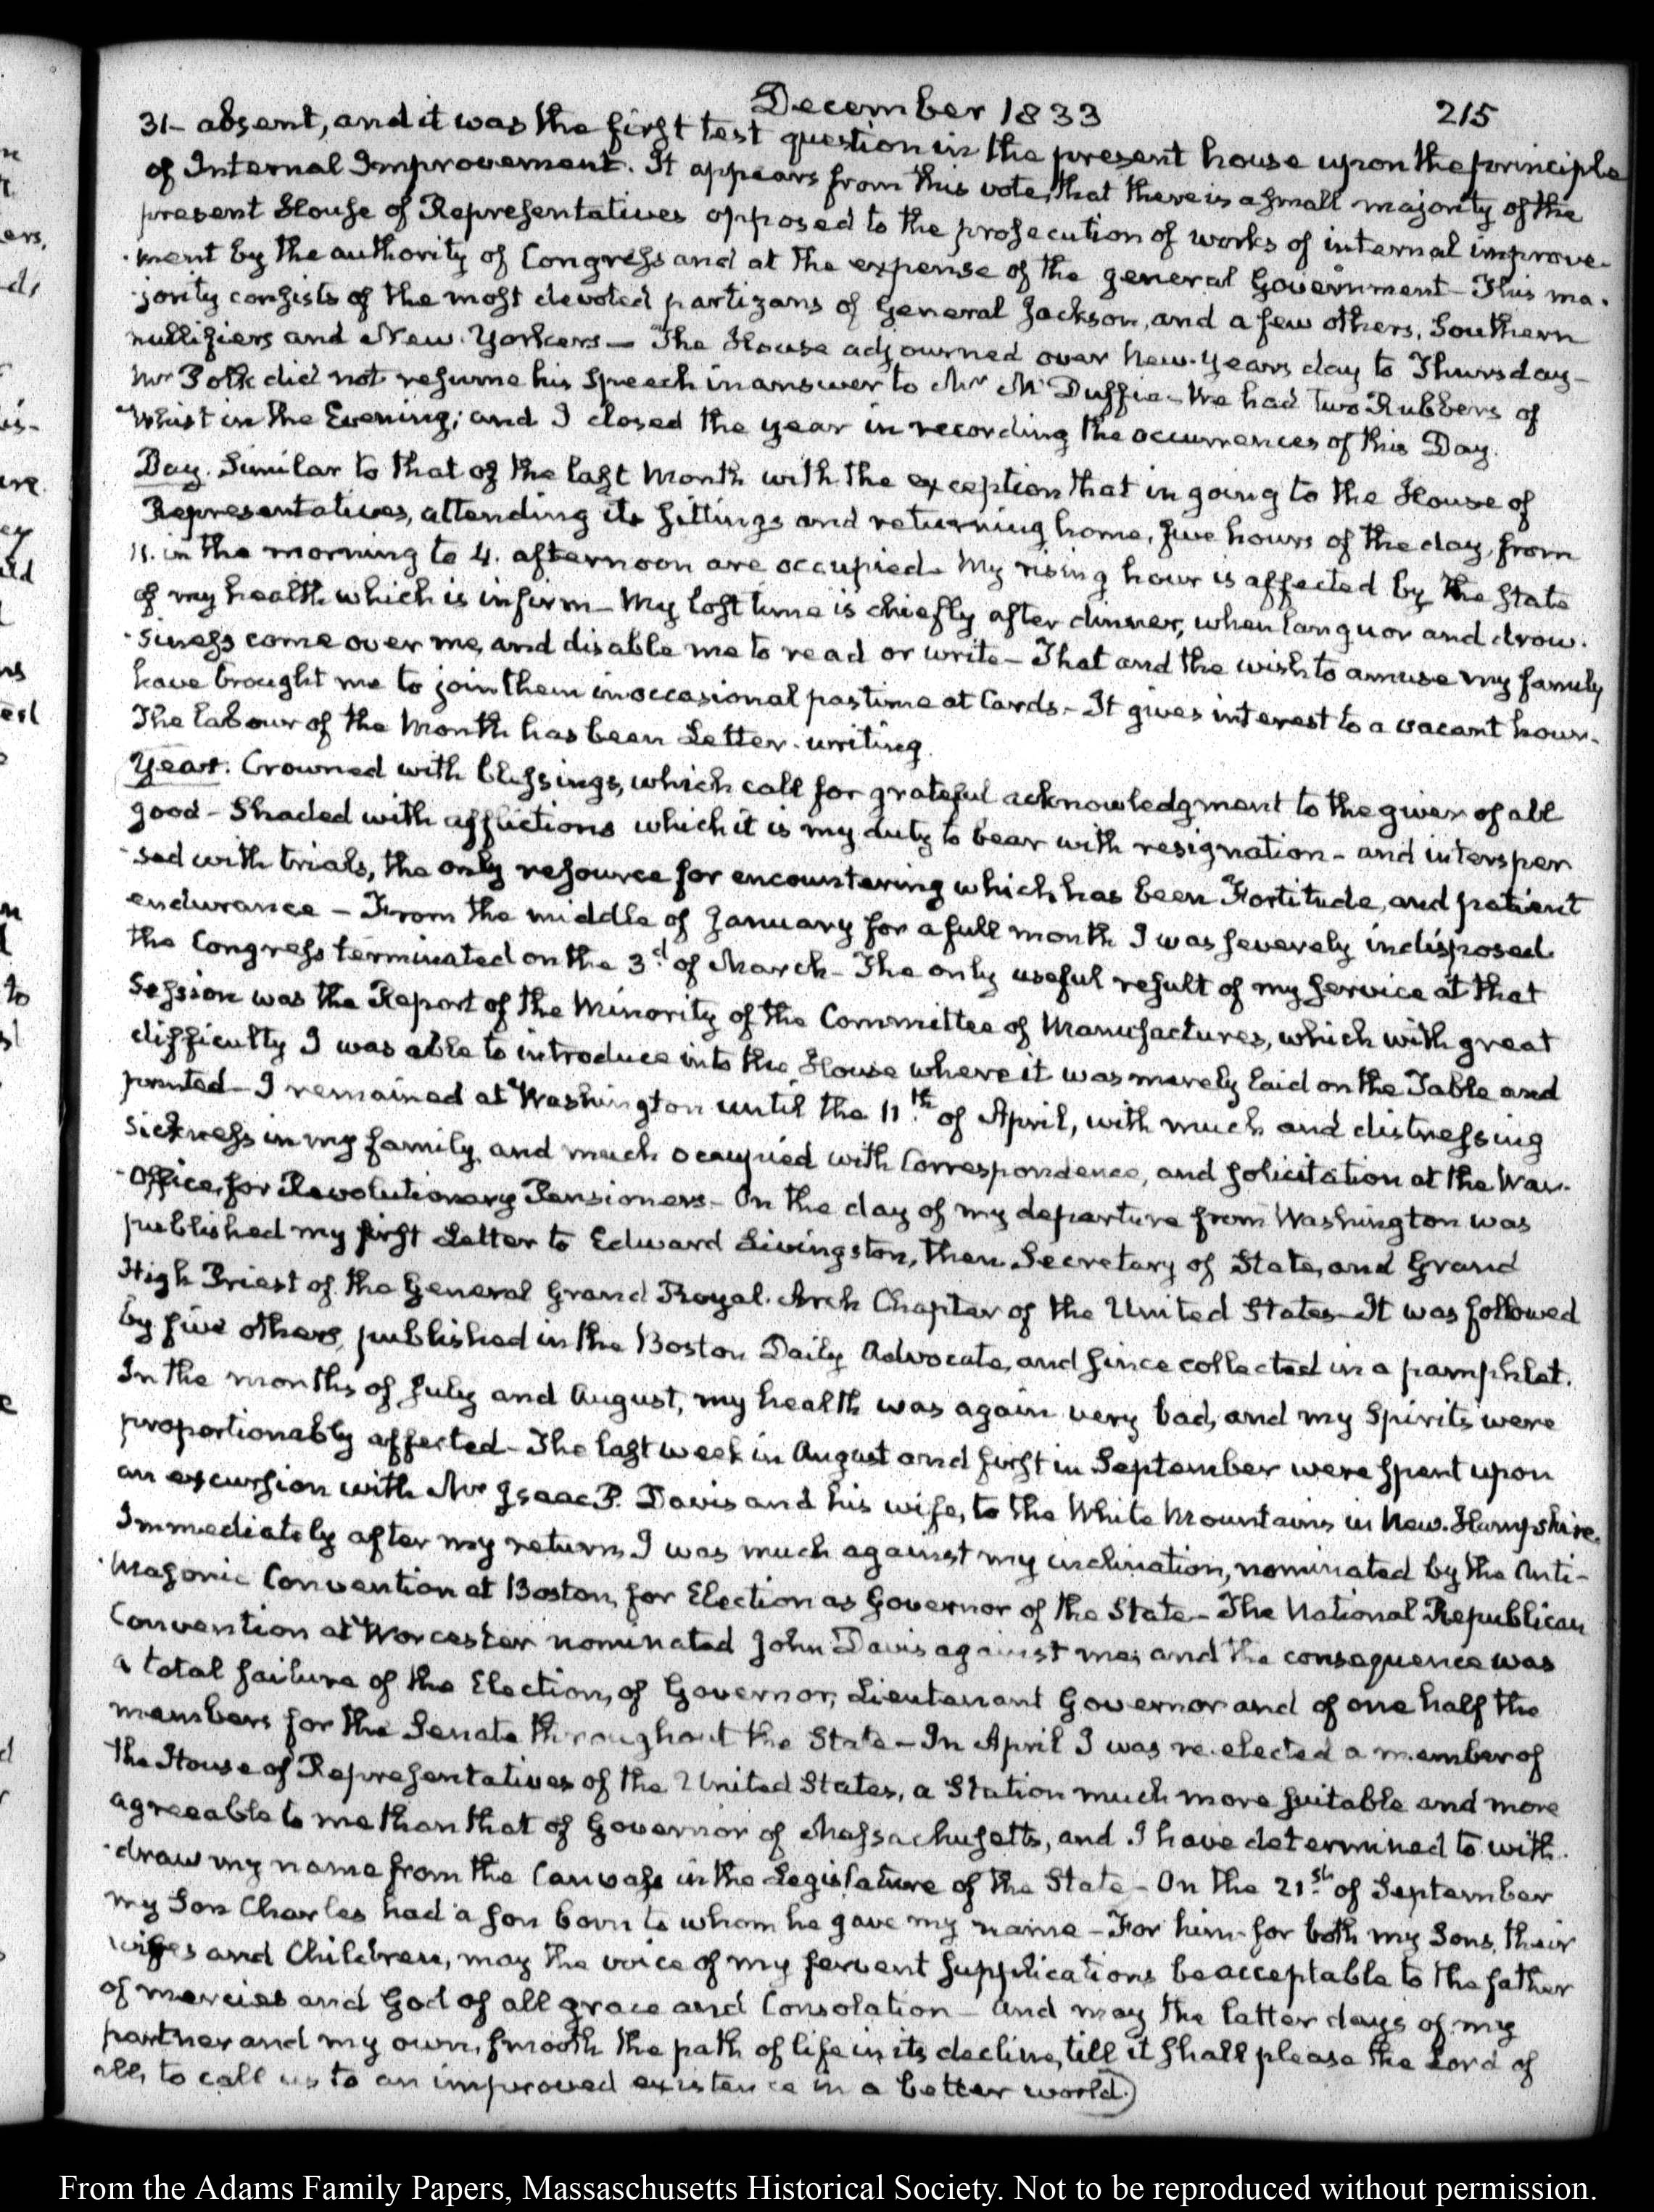 December 1833
215
31- absent, and it was the first test question in the present house upon the principle
of Internal Improvement. It appears from this vote, that there is a small majority of the
present House of Representatives opposed to the prosecution of works of internal improve-
ment by the authority of Congress and at the expense of the general Government - This ma-
jority consists of the most devoted partizans of General Jackson, and a few others, Southern
nullifiers and New-Yorkers - The House adjourned over New-Years day to Thursday -
Mr Polk did not resume his Speech in answer to Mr McDuffie - We had two Rubbers of
Whist in the Evening; and I closed the year in recording the occurrences of this Day.
Day. Similar to that of the last Month with the exception that in going to the House of
Representatives, attending its sittings and returning home, five hours of the day, from
11. in the morning to 4. afternoon are occupied. My rising hour is affected by the state
of my health which is infirm - My lost time is chiefly after dinner, when languor and drow-
siness come over me, and disable me to read or write - That and the wish to amuse my family
have brought me to join them in occasional pastime at Cards - It gives interest to a vacant hour.
The labour of the Month has been Letter-writing.
Year. Crowned with blessings, which call for grateful acknowledgment to the giver of all
good - Shaded with afflictions which it is my duty to bear with resignation - and intersper
-sed with trials, the only resource for encountering which, has been Fortitude, and patient
endurance - From the middle of January for a full month I was severely indisposed.
the Congress terminated on the 3d of March - The only useful result of my service at that
Session was the Report of the Minority of the Committee of Manufactures, which with great
difficulty I was able to introduce into the House where it was merely laid on the Table and
printed - I remained at Washington until the 11th of April, with much and distressing
sickness in my family, and much occupied with Correspondence, and solicitation at the War-
Office, for Revolutionary Pensioners - On the day of my departure from Washington was
published my first Letter to Edward Livingston, then Secretary of State, and Grand
High Priest of the General Grand Royal-Arch Chapter of the United States - It was followed
by five others, published in the Boston Daily Advocate, and since collected in a pamphlet.
In the months of July and August, my health was again very bad, and my Spirits were
proportionably affected - The last week in August and first in September were spent upon
an excursion with Mr Isaac P. Davis and his wife, to the White Mountains in New-Hampshire.
Immediately after my return, I was much against my inclination, nominated by the Anti-
Masonic Convention at Boston, for Election as Governor of the State - The National Republican
Convention at Worcester nominated John Davis against me; and the consequence was
a total failure of the Election, of Governor, Lieutenant Governor and of one half the
members for the Senate throughout the State - In April I was re-elected a member of
the House of Representatives of the United States, a Station much more suitable and more
agreeable to me than that of Governor of Massachusetts, and I have determined to with-
draw my name from the Canvass in the Legislature of the State - On the 21st of September
my Son Charles had a son born to whom he gave my name - For him - for both my Sons, their
wives and Children, may the voice of my fervent supplications be acceptable to the father
of mercies and God of all grace and Consolation - And may the latter days of my
partner and my own, smooth the path of life in its decline, till it shall please the Lord of
all, to call us to an improved existence in a better world.)
From the Adams Family Papers, Massachusetts Historical Society. Not to be reproduced without permission.